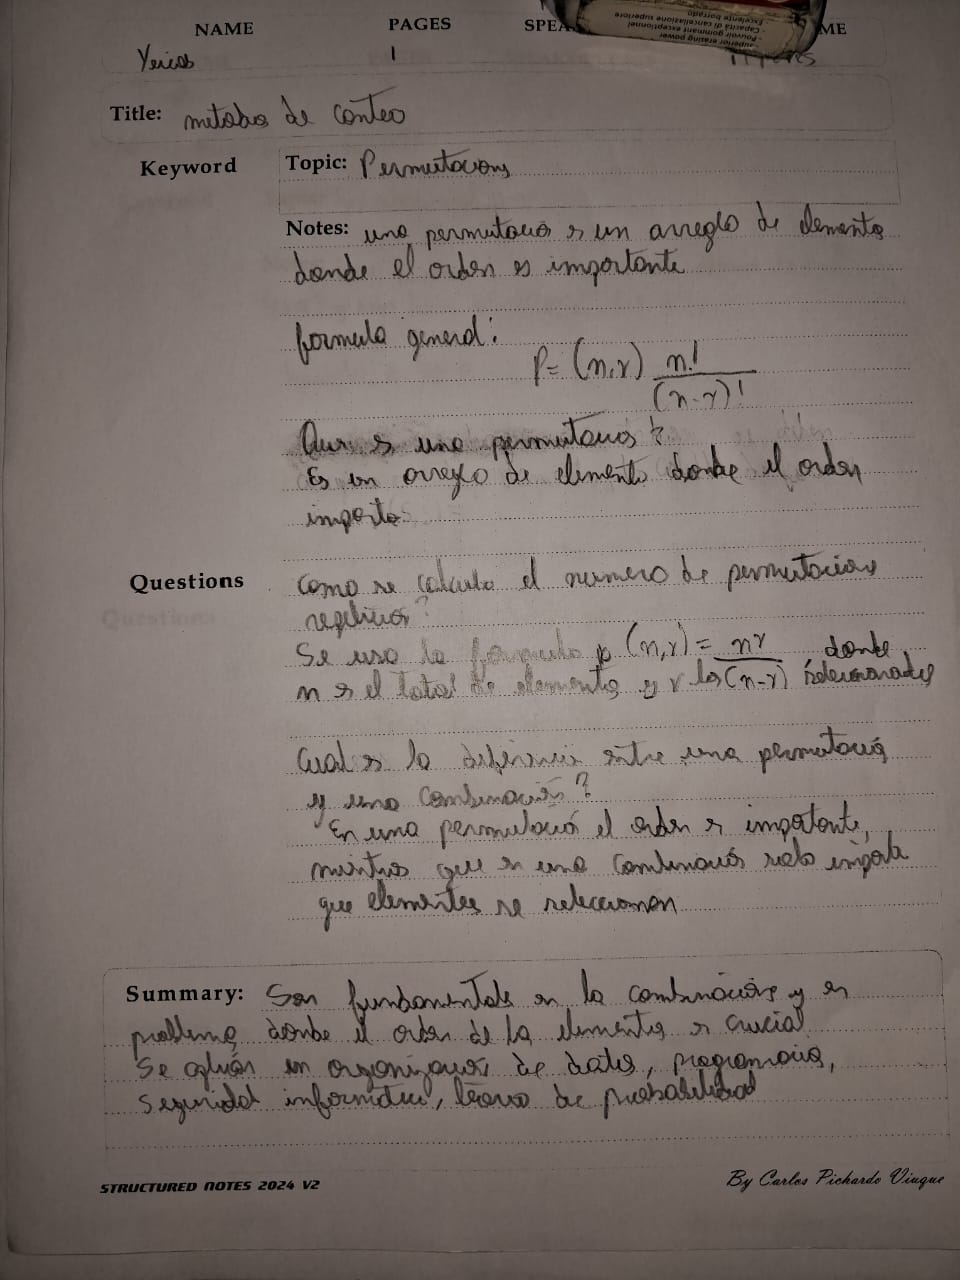 NAME PAGES SPEA ME
Yericos 1
superior erasing power
- Pouvoir gommant exceptionnel
- Capacità di cancellazione superiore
- Excelente borrado
Title: metodos de conteo
Keyword Topic: Permutacions
Notes: una permutacio es un arreglo de elemento
donde el orden es importante
formula general:
P= (n,r) n!
(n-r)!
Que es una permutacios?
Es un arreglo de elemento donde el orden
importa.
Questions como se calcula el numero de permutacions
?
Se usa la formula p (n,r) = nr donde
n es el total de elemento y r los (n-r) seleccionados
Cual es la diferencia entre una permutació
y una combinación?
En una permutació el orden es importante,
mientras que en una combinació solo importa
que elementes se seleccionan
Summary: Son fundamentals en la combinació y en
problema donde el orden de la elementos es crucial
Se aplican en organizació de datos, programació,
seguridad informatica, teoria de probabilidad
STRUCTURED NOTES 2024 V2 By Carlos Pichardo Viuque